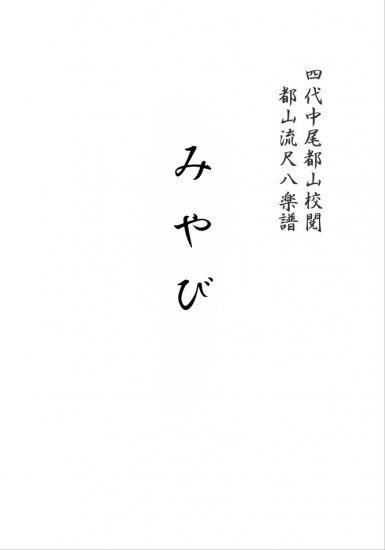 四代中尾都山校閲
都山流尺八楽譜
みやび